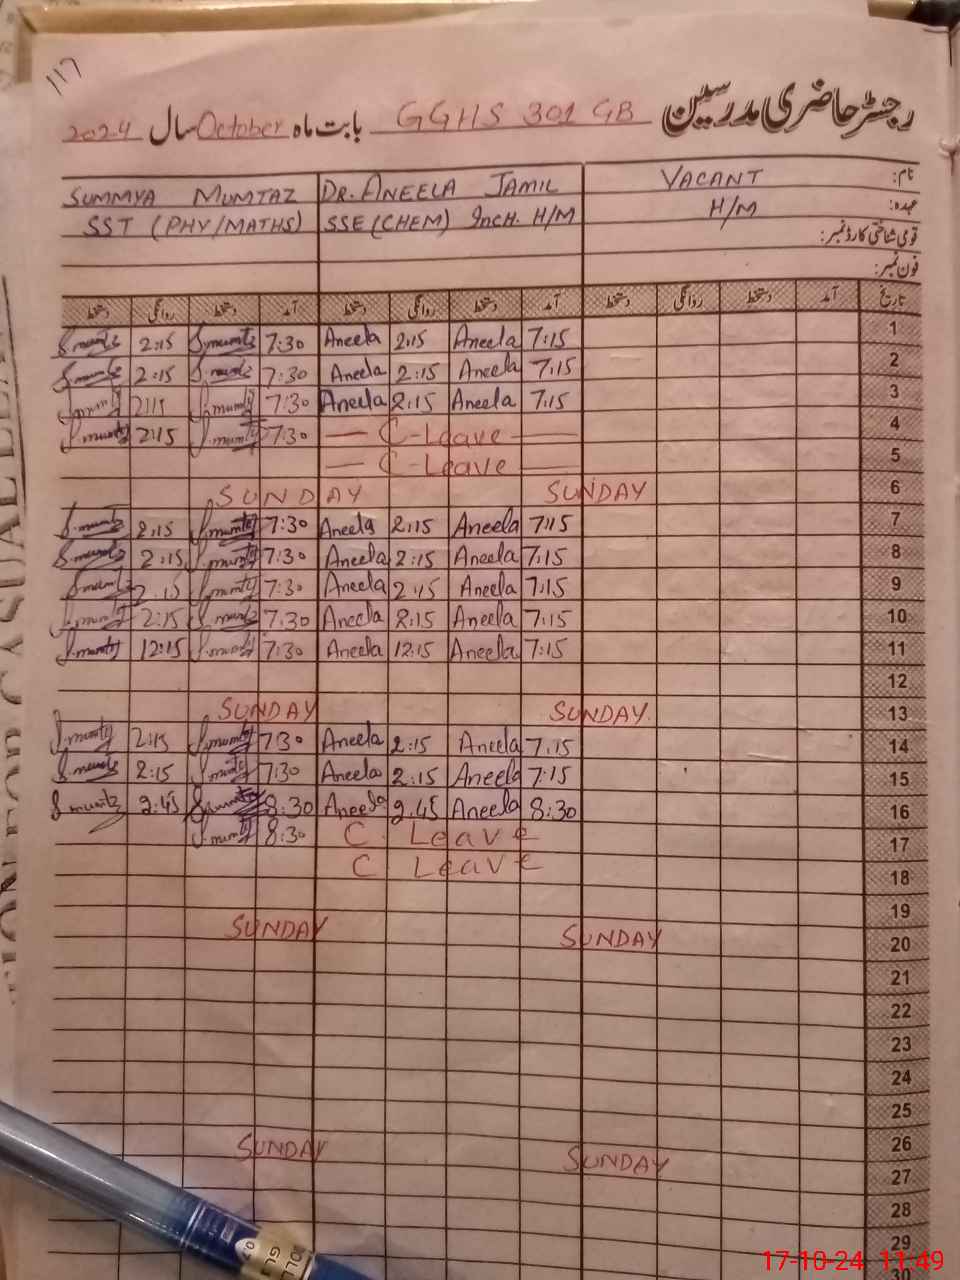 117
رجسٹر حاضری مدرسین GGHS 301 GB بابت ماہ October سال 2024
نام: VACANT DR. ANEELA JAMIL SUMMYA MUMTAZ
عہدہ: H/M SSE (CHEM) INCH. H/M SST (PHY/MATHS)
قومی شناختی کارڈ نمبر:
فون نمبر:
تاریخ آمد دستخط روانگی دستخط آمد دستخط روانگی دستخط آمد دستخط روانگی دستخط
1 7:15 Aneela 2:15 Aneela 7:30 S.mumtz 2:15 S.mumtz
2 7:15 Aneela 2:15 Aneela 7:30 S.mumtz 2:15 S.mumtz
3 7:15 Aneela 2:15 Aneela 7:30 S.mumtz 2:15 S.mumtz
4 C-Leave 7:30 S.mumtz 2:15 S.mumtz
5 C-Leave
6 SUNDAY SUNDAY
7 7:15 Aneela 2:15 Aneela 7:30 S.mumtz 2:15 S.mumtz
8 7:15 Aneela 2:15 Aneela 7:30 S.mumtz 2:15 S.mumtz
9 7:15 Aneela 2:15 Aneela 7:30 S.mumtz 2:15 S.mumtz
10 7:15 Aneela 2:15 Aneela 7:30 S.mumtz 2:15 S.mumtz
11 7:15 Aneela 12:15 Aneela 7:30 S.mumtz 12:15 S.mumtz
12
13 SUNDAY SUNDAY
14 7:15 Aneela 2:15 Aneela 7:30 S.mumtz 2:15 S.mumtz
15 7:15 Aneela 2:15 Aneela 7:30 S.mumtz 2:15 S.mumtz
16 8:30 Aneela 2:45 Aneela 8:30 S.mumtz 2:45 S.mumtz
17 C. Leave 8:30 S.mumtz
18 C Leave
19
20 SUNDAY SUNDAY
21
22
23
24
25
26
27 SUNDAY SUNDAY
28
29
30
17-10-24 11:49